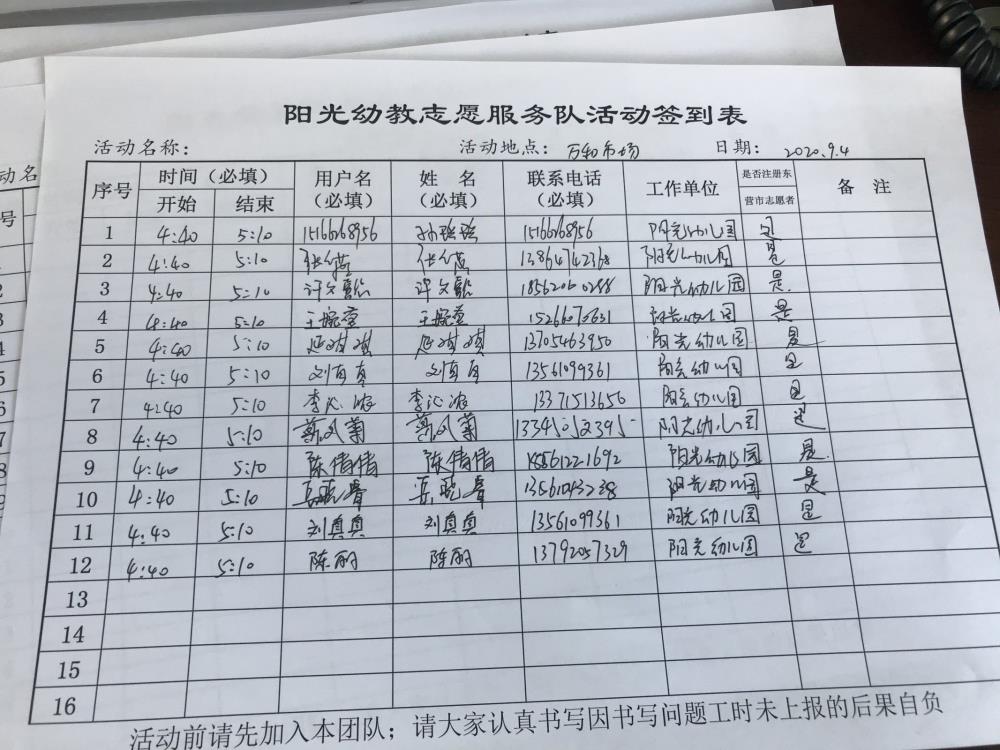 阳光幼教志愿服务队活动签到表
活动名称： 活动地点：万和市场 日期：2020.9.4
序号 时间（必填） 用户名（必填） 姓名（必填） 联系电话（必填） 工作单位 是否注册东营市志愿者 备注
开始 结束
1 4:40 5:10 15166268956 孙瑶瑶 15166268956 阳光幼儿园 是
2 4:40 5:10 13864742368 阳光幼儿园 是
3 4:40 5:10 阳光幼儿园 是
4 4:40 5:10 王婉莹 王婉莹 15266070631 阳光幼儿园 是
5 4:40 5:10 延琪琪 延琪琪 13705463950 阳光幼儿园 是
6 4:40 5:10 13561099361 阳光幼儿园 是
7 4:40 5:10 李沁浓 李沁浓 13371513650 阳光幼儿园 是
8 4:40 5:10 蔡凤菊 蔡凤菊 13345052395 阳光幼儿园 是
9 4:40 5:10 陈倩倩 陈倩倩 18561221692 阳光幼儿园 是
10 4:40 5:10 13561043238 阳光幼儿园 是
11 4:40 5:10 刘真真 刘真真 13561099361 阳光幼儿园 是
12 4:40 5:10 陈丽 陈丽 13792057329 阳光幼儿园 是
13
14
15
16
活动前请先加入本团队；请大家认真书写因书写问题工时未上报的后果自负